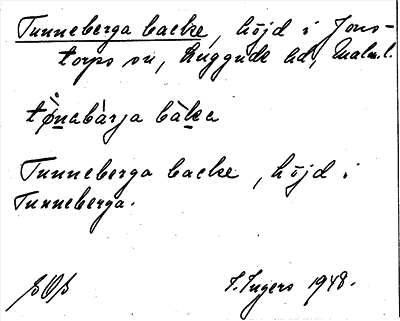 Tunneberga backe, höjd i Jons-
torps sn, Luggude hd, Malm.l.
tònabàrja bàka
Tunneberga backe, höjd i
Tunneberga.
SOS I. Ingers 1948.